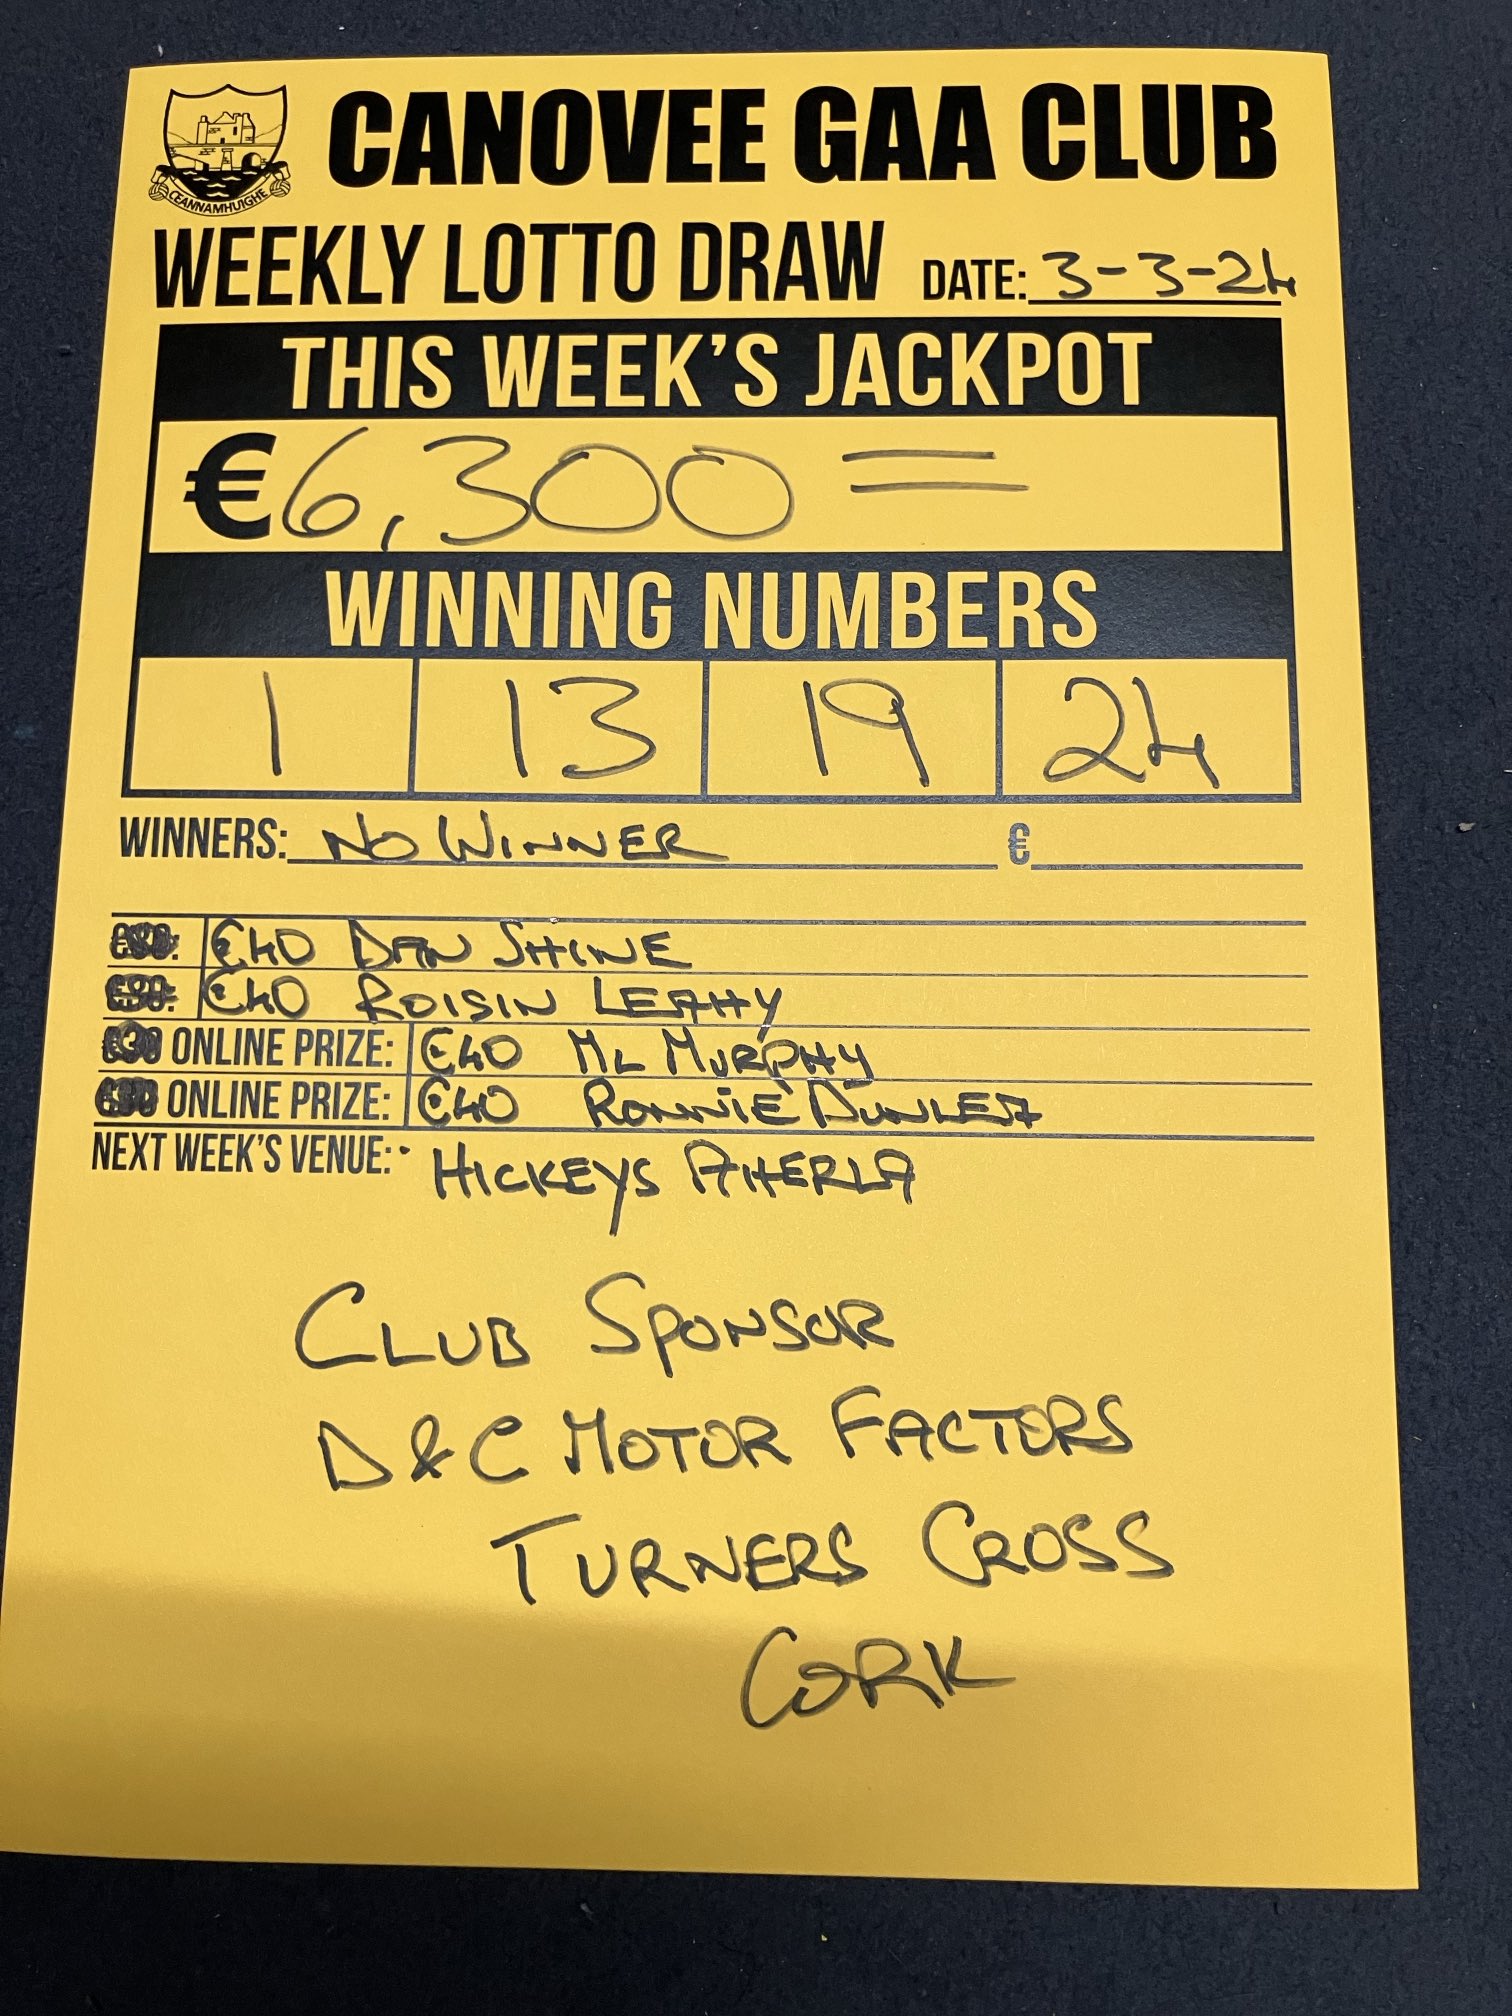 CEANNAMHUIGHE
CANOVEE GAA CLUB
WEEKLY LOTTO DRAW DATE: 3-3-24
THIS WEEK'S JACKPOT
€6,300=
WINNING NUMBERS
1 13 19 24
WINNERS: NO WINNER €
€40 DAN SHINE
€40 ROISIN LEAHY
ONLINE PRIZE: €40 ML MURPHY
ONLINE PRIZE: €40 RONNIE DUNLEA
NEXT WEEK'S VENUE: HICKEYS AHERLA
CLUB SPONSOR
D&C MOTOR FACTORS
TURNERS CROSS
CORK